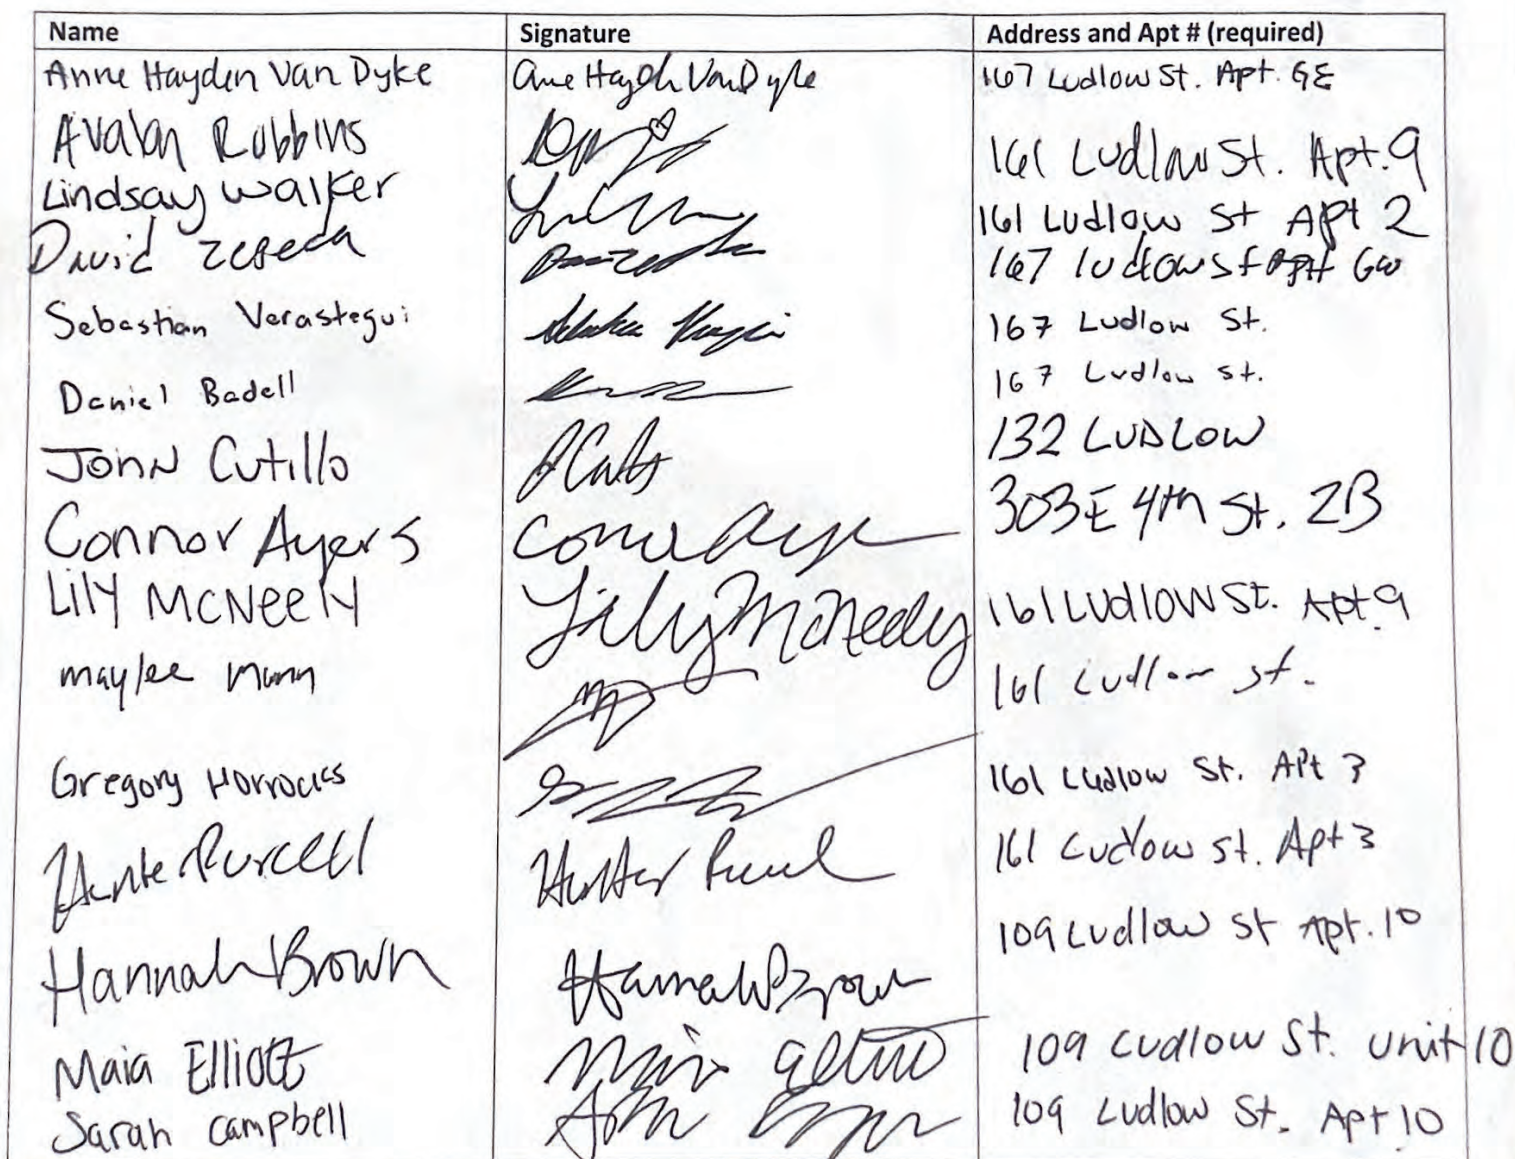 Name Signature Address and Apt # (required)
Anne Hayden Van Dyke Anne Hayden Van Dyke 167 Ludlow St. Apt. GE
Avalon Robbins 161 Ludlow St. Apt. 9
Lindsay Walker 161 Ludlow St Apt 2
David 167 ludlow st apt GW
Sebastian Verastegui 167 Ludlow St.
Daniel Badell 167 Ludlow St.
John Cutillo 132 LUDLOW
Connor Ayers Connor Ayers 303 E 4th St. 2B
Lily McNeely Lily McNeely 161 Ludlow St. Apt. 9
maylee 161 Ludlow St.
Gregory Horrocks 161 Ludlow St. Apt 3
Hunter Purcell Hunter Purcell 161 Ludlow St. Apt 3
Hannah Brown Hannah Brown 109 Ludlow St Apt. 10
Maia Elliott Maia Elliott 109 Ludlow St. Unit 10
Sarah Campbell 109 Ludlow St. Apt 10